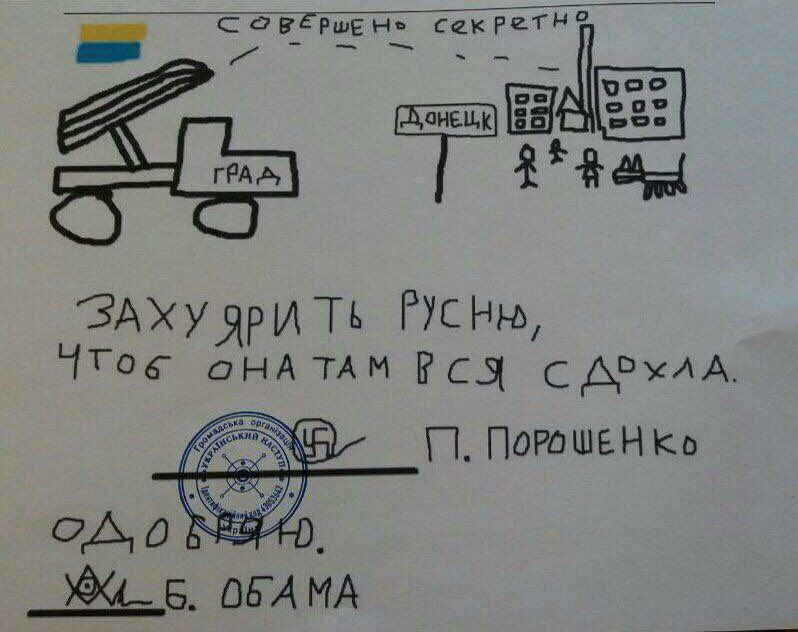 СОВЕРШЕНО СЕКРЕТНО
ГРАД
ДОНЕЦК
ЗАХУЯРИТЬ РУСНЮ,
ЧТОБ ОНА ТАМ ВСЯ СДОХЛА.
Громадська організація
УКРАЇНСЬКИЙ НАСТУП
Ідентифікаційний код
Україна
П. ПОРОШЕНКО
ОДОБРЯЮ.
Б. ОБАМА